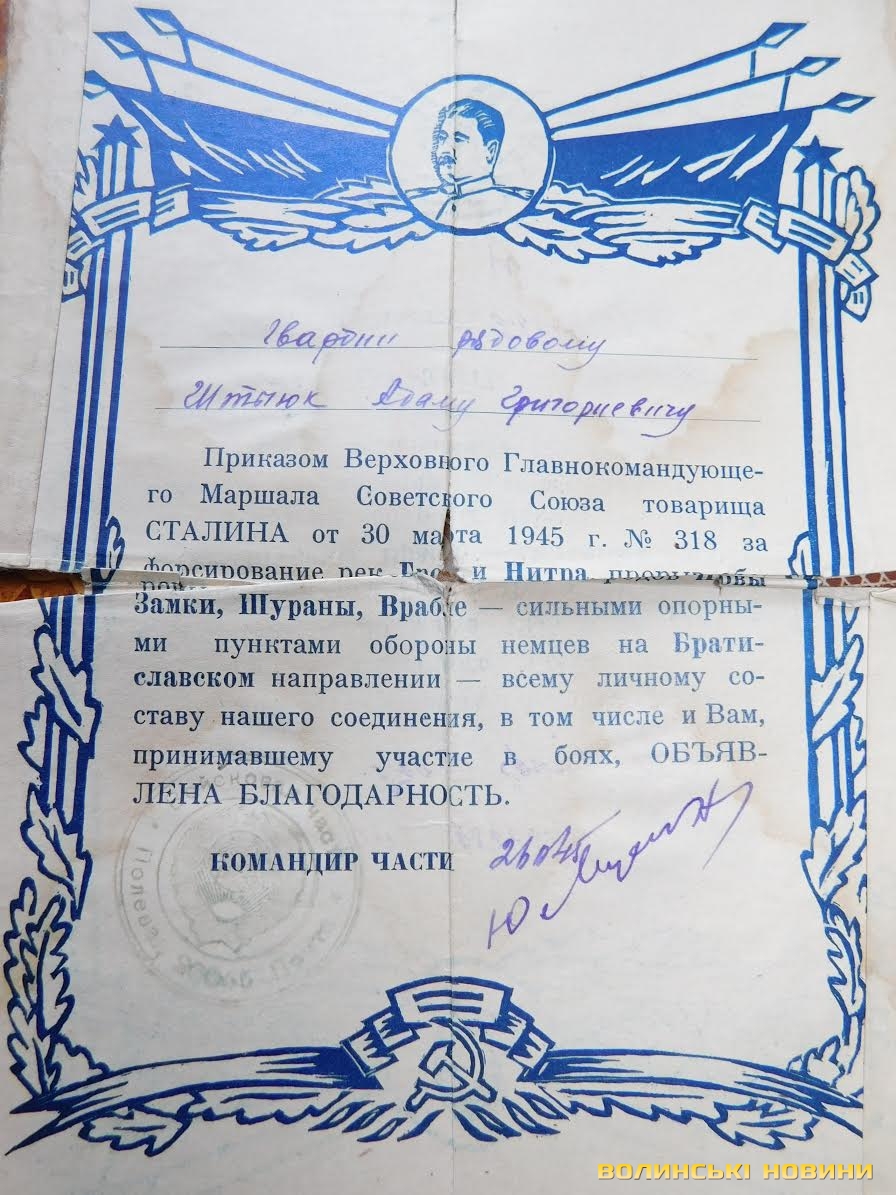 Гвардии рядовому
Штыюк Адаму Григориевичу
Приказом Верховного Главнокомандующе-
го Маршала Советского Союза товарища
СТАЛИНА от 30 марта 1945 г. № 318 за
форсирование рек Грон и Нитра
Замки, Шураны, Врабле — сильными опорны-
ми пунктами обороны немцев на Брати-
славском направлении — всему личному со-
ставу нашего соединения, в том числе и Вам,
принимавшему участие в боях, ОБЪЯВ-
ЛЕНА БЛАГОДАРНОСТЬ.
КОМАНДИР ЧАСТИ
ВОЛИНСЬКІ НОВИНИ